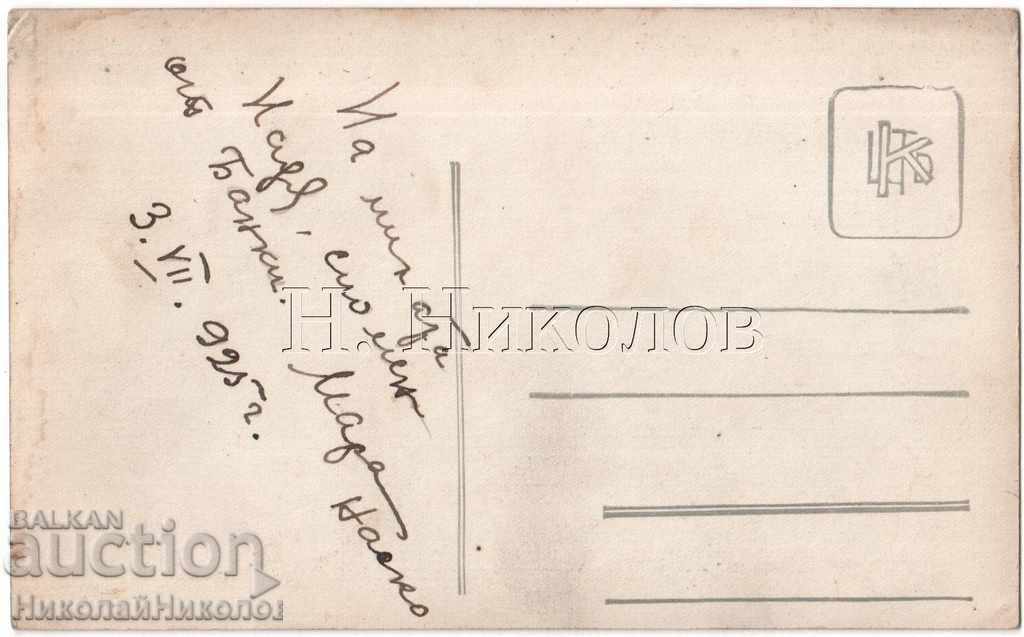 На милата
Надя, спомен
отъ Банки.
Мара
Наско
3. VII. 925 г.
Н. Николов
BALKAN
auction
НиколайНиколов